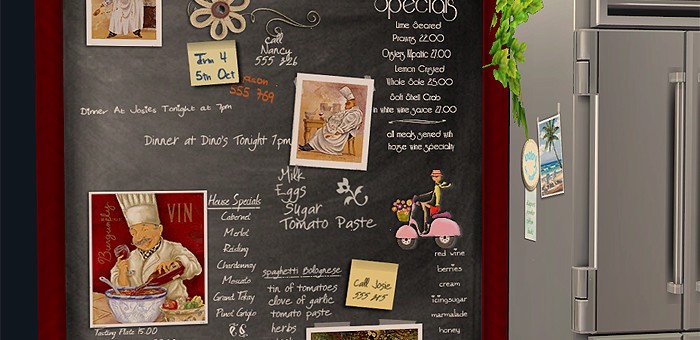 Specials
Lime Seared
Prawns 22.00
Oysters Kilpatric 27.00
Lemon Crusted
Whole Sole 25.00
Soft Shell Crab
in white wine sauce 27.00
all meals served with
house wine specialty
Call
Nancy
555 226
Jim 4
5th Oct
555 769
Dinner At Josies Tonight at 7pm
Dinner at Dino's Tonight 7pm
Milk
Eggs
Sugar
Tomato Paste
VIN
Burgundy
Tasting Plate 15.00
House Specials
Cabernet
Merlot
Reisling
Chardonnay
Moscato
Grand Tokay
Pinot Grigio
spaghetti Bolognese
tin of tomatoes
clove of garlic
tomato paste
herbs
Call Josie
555
red wine
berries
cream
icingsugar
marmalade
honey